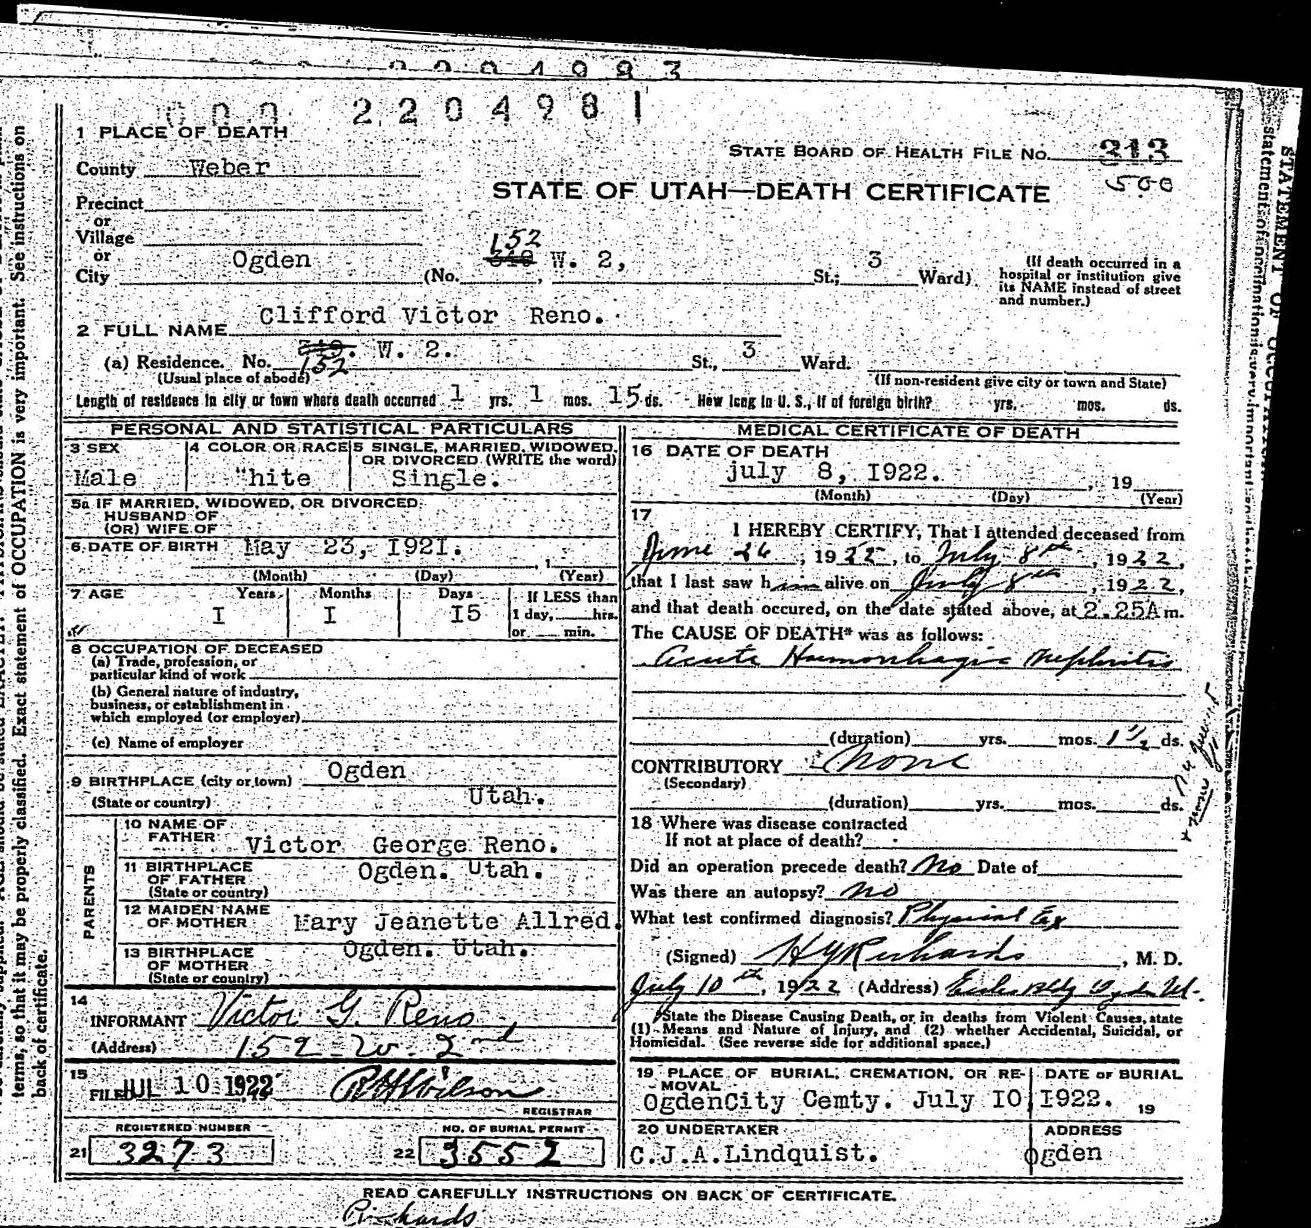 2204983
000 2204981
1 PLACE OF DEATH
STATE BOARD OF HEALTH FILE No. 313
500
County Weber
STATE OF UTAH—DEATH CERTIFICATE
Precinct
or
Village
or
City Ogden (No. 152 W. 2, St.; 3 Ward)
(If death occurred in a hospital or institution give its NAME instead of street and number.)
2 FULL NAME Clifford Victor Reno.
(a) Residence. No. 152 W. 2. St., 3 Ward.
(Usual place of abode) (If non-resident give city or town and State)
Length of residence in city or town where death occurred 1 yrs. 1 mos. 15 ds. How long in U. S., if of foreign birth? yrs. mos. ds.
PERSONAL AND STATISTICAL PARTICULARS
3 SEX 4 COLOR OR RACE 5 SINGLE, MARRIED, WIDOWED, OR DIVORCED (WRITE the word)
Male "hite Single.
5a IF MARRIED, WIDOWED, OR DIVORCED
HUSBAND OF
(OR) WIFE OF
6 DATE OF BIRTH May 23, I92I. , 1
(Month) (Day) (Year)
7 AGE Years Months Days If LESS than
I I I5 1 day, hrs.
or min.
8 OCCUPATION OF DECEASED
(a) Trade, profession, or
particular kind of work
(b) General nature of industry,
business, or establishment in
which employed (or employer)
(c) Name of employer
9 BIRTHPLACE (city or town) Ogden
(State or country) Utah.
PARENTS
10 NAME OF
FATHER Victor George Reno.
11 BIRTHPLACE
OF FATHER Ogden. Utah.
(State or country)
12 MAIDEN NAME
OF MOTHER Mary Jeanette Allred.
13 BIRTHPLACE Ogden. Utah.
OF MOTHER
(State or country)
14
INFORMANT Victor G. Reno
(Address) 152 - W. 2nd
15
FILED JUL 10 1922 R H Wilson
REGISTRAR
REGISTERED NUMBER NO. OF BURIAL PERMIT
21 3273 22 3552
MEDICAL CERTIFICATE OF DEATH
16 DATE OF DEATH
july 8, I922. , 19
(Month) (Day) (Year)
17
I HEREBY CERTIFY, That I attended deceased from
June 26, 1922, to July 8th, 1922,
that I last saw him alive on July 8th, 1922,
and that death occured, on the date stated above, at 2.25A m.
The CAUSE OF DEATH* was as follows:
Acute Haemorrhagic Nephritis
(duration) yrs. mos. 1 1/2 ds.
CONTRIBUTORY None
(Secondary)
(duration) yrs. mos. ds.
18 Where was disease contracted
If not at place of death?
Did an operation precede death? No Date of
Was there an autopsy? No
What test confirmed diagnosis? Physical Ex
(Signed) H Y Richards, M. D.
July 10th, 1922 (Address) Eccles Bldg Ogden Ut.
*State the Disease Causing Death, or, in deaths from Violent Causes, state
(1) Means and Nature of Injury, and (2) whether Accidental, Suicidal, or
Homicidal. (See reverse side for additional space.)
19 PLACE OF BURIAL, CREMATION, OR RE- DATE OF BURIAL
MOVAL
OgdenCity Cemty. July IO I922. 19
20 UNDERTAKER ADDRESS
C.J.A.Lindquist. Ogden
READ CAREFULLY INSTRUCTIONS ON BACK OF CERTIFICATE.
Richards
terms, so that it may be properly classified. Exact statement of OCCUPATION is very important. See instructions on
back of certificate.